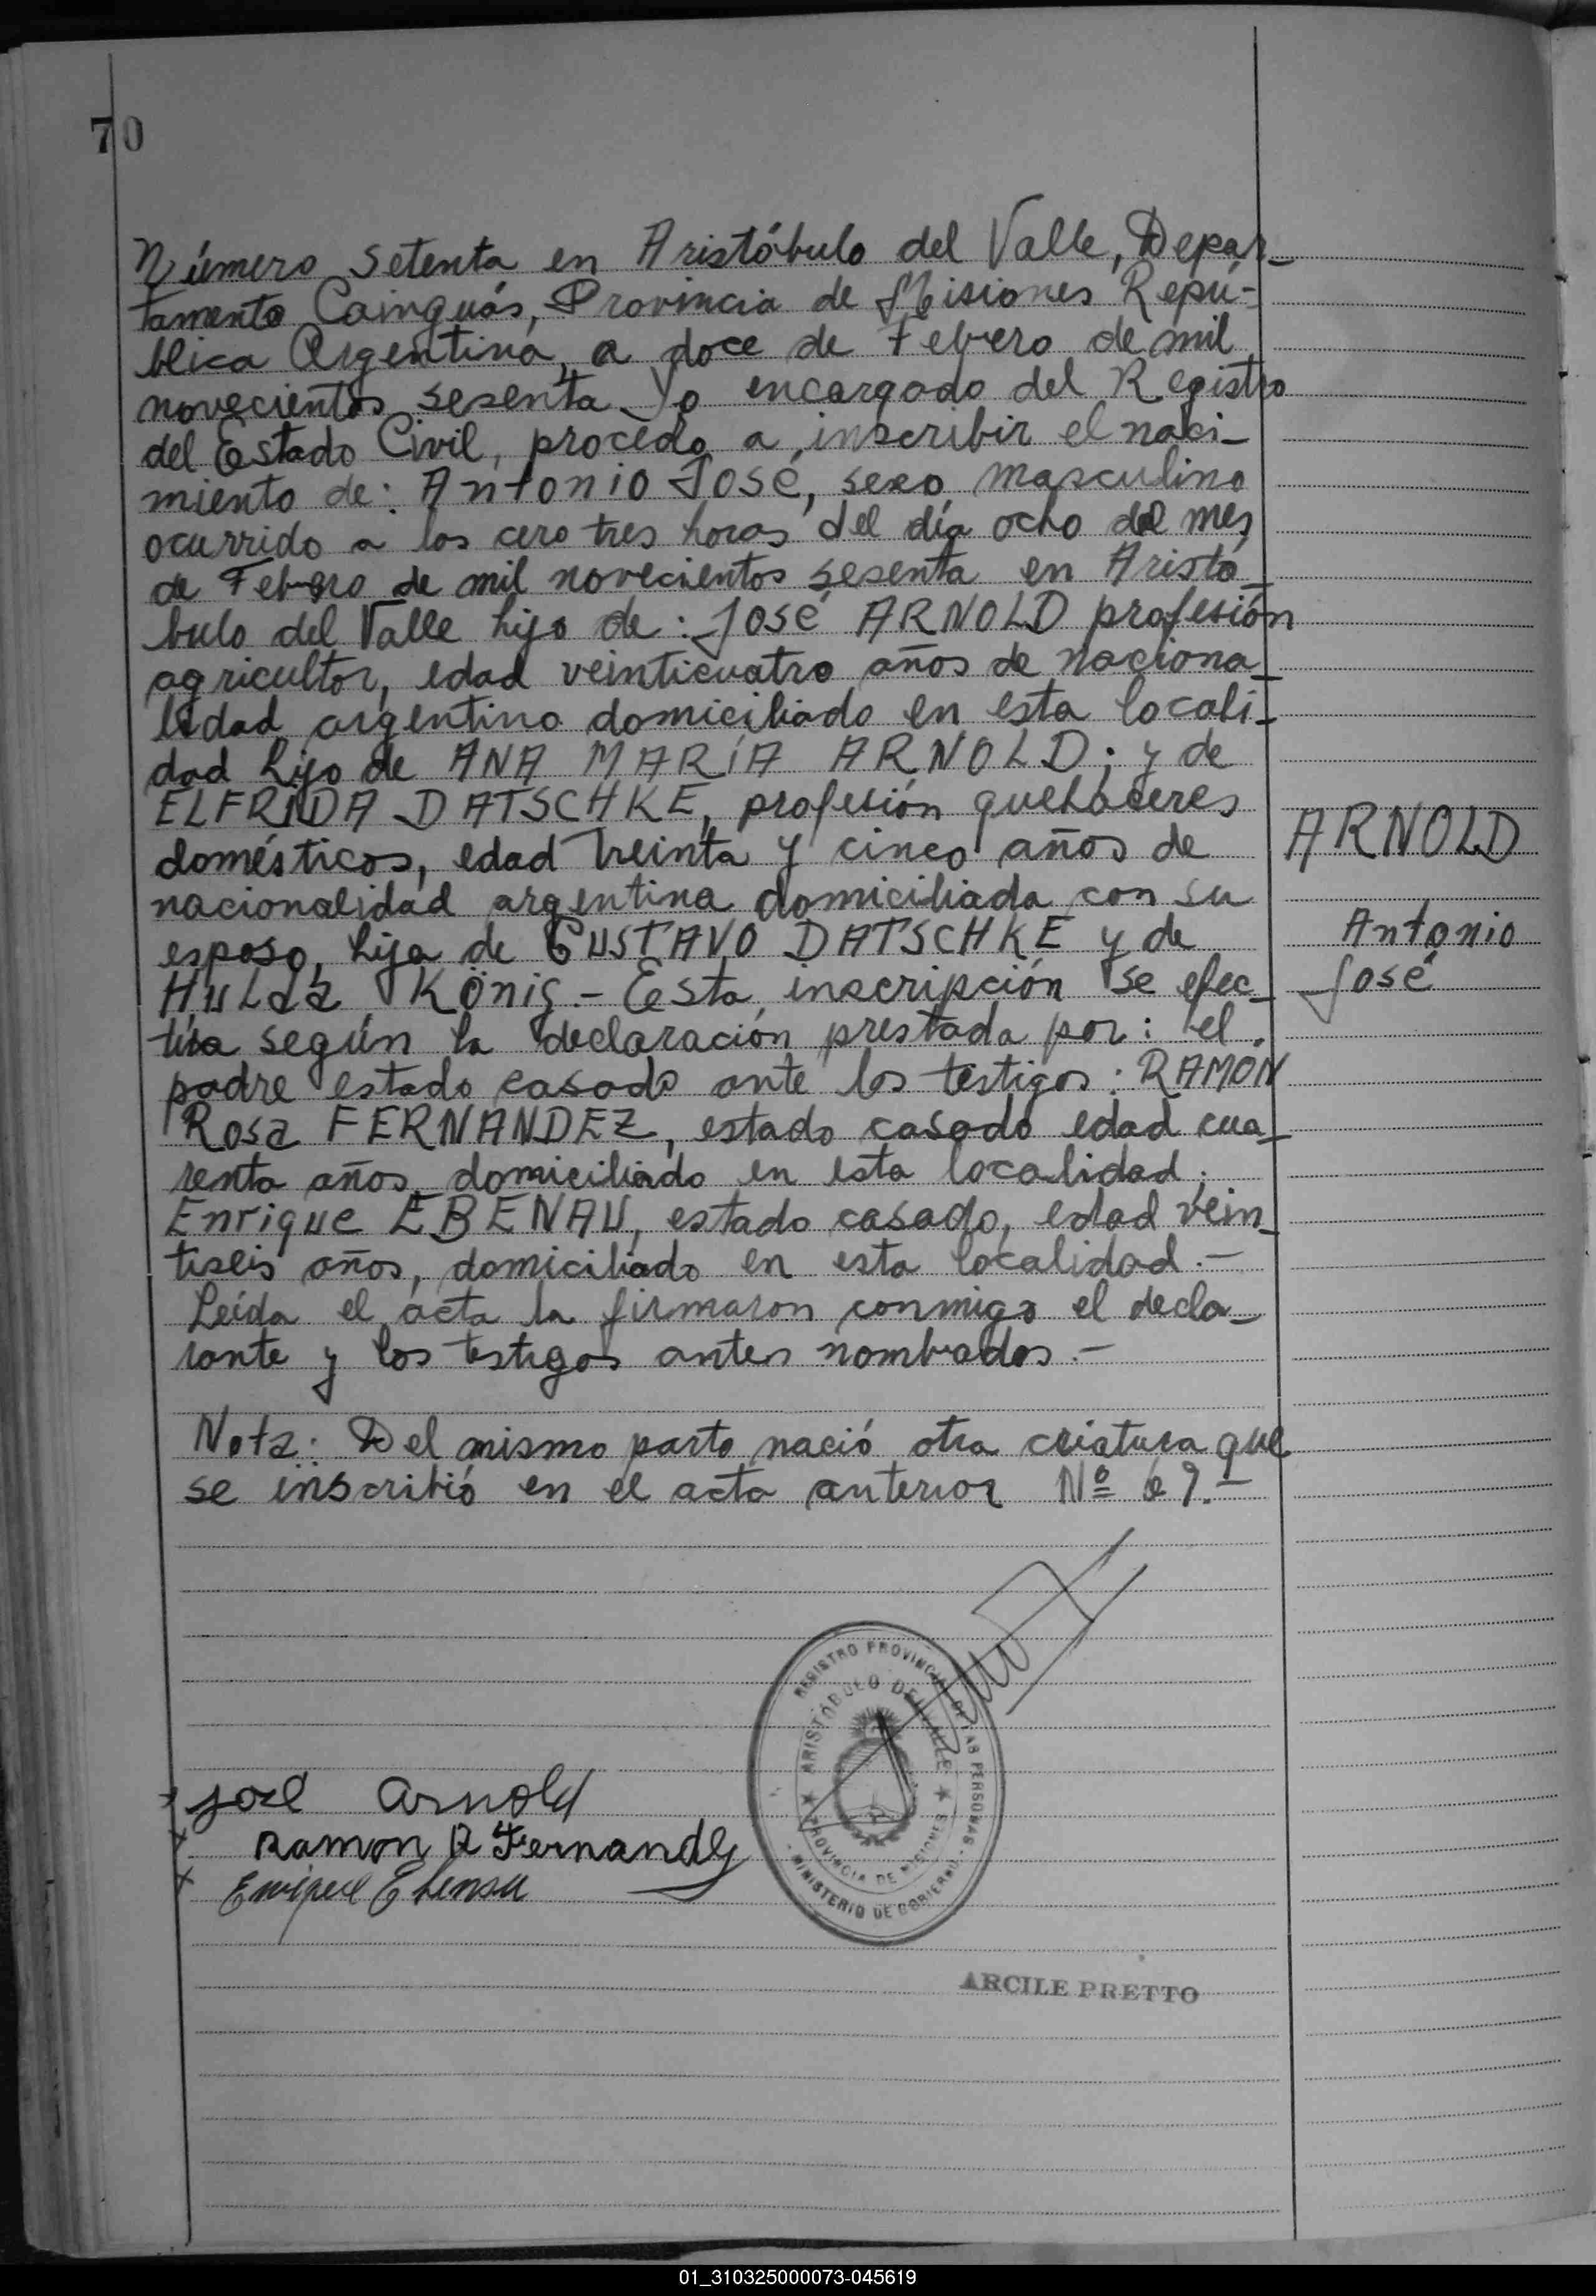 70
Número setenta en Aristóbulo del Valle, Depar-
tamento Cainguás, Provincia de Misiones Repú-
blica Argentina, a doce de Febrero de mil
novecientos sesenta Yo encargado del Registro
del Estado Civil, procedo a inscribir el naci-
miento de: Antonio José, sexo masculino
ocurrido a las cero tres horas del día ocho del mes
de Febrero de mil novecientos sesenta en Aristó-
bulo del Valle hijo de: José ARNOLD profesión
agricultor, edad veinticuatro años de naciona-
lidad argentino domiciliado en esta locali-
dad hijo de ANA MARÍA ARNOLD; y de
ELFRIDA DATSCHKE, profesión quehaceres
domésticos, edad treinta y cinco años de
nacionalidad argentina domiciliada con su
esposo, hija de GUSTAVO DATSCHKE y de
HULda König.- Esta inscripción se efec-
túa según la declaración prestada por: el
padre estado casado ante los testigos: RAMON
Rosa FERNANDEZ, estado casado edad cua-
renta años domiciliado en esta localidad.
Enrique EBENAU, estado casado, edad vein-
tiseis años, domiciliado en esta localidad.-
Leída el acta la firmaron conmigo el decla-
rante y los testigos antes nombrados.-
Nota: Del mismo parto nació otra criatura que
se inscribió en el acta anterior Nº 69.-
ARNOLD
Antonio
José
José Arnold
Ramon R Fernandez
Enrique Ebenau
REGISTRO PROVINCIAL DE LAS PERSONAS
ARISTÓBULO DEL VALLE
PROVINCIA DE MISIONES
MINISTERIO DE GOBIERNO
ARCILE PRETTO
01_310325000073-045619